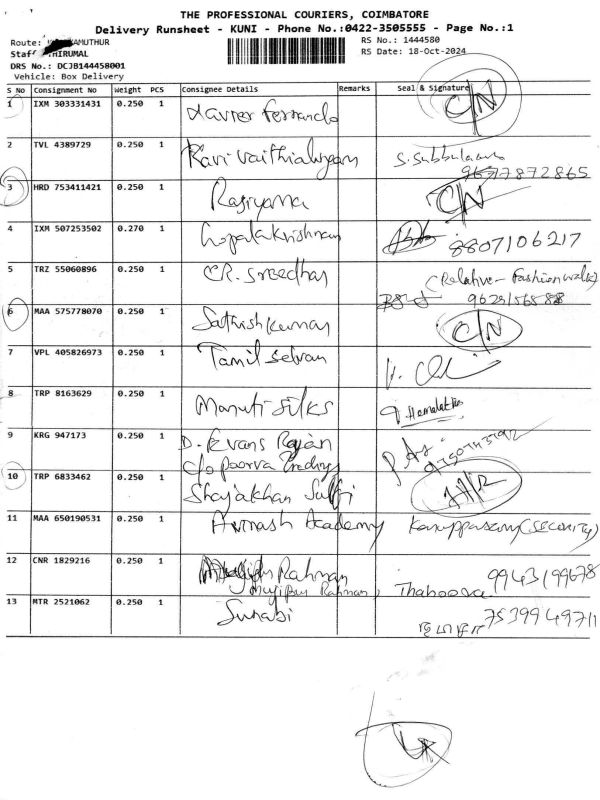 THE PROFESSIONAL COURIERS, COIMBATORE
Delivery Runsheet - KUNI - Phone No.:0422-3505555 - Page No.:1
Route: AMUTHUR
RS No.: 1444580
Staff HIRUMAL
RS Date: 18-Oct-2024
DRS No.: DCJB144458001
Vehicle: Box Delivery
S No Consignment No Weight PCS Consignee Details Remarks Seal & Signature
1 IXM 303331431 0.250 1 Xavier Fernando C/N
2 TVL 4389729 0.250 1 Ravi Vaithialingam S. Subbulaxmi
96777872865
3 HRD 753411421 0.250 1 Rasiyama C/N
4 IXM 507253502 0.270 1 Gopalakrishnan 8807106217
5 TRZ 55060896 0.250 1 CR. Sreedhar (Relative - Fashionwalk)
6 MAA 575778070 0.250 1 Sathish Kumar C/N
7 VPL 405826973 0.250 1 Tamil Selvan
8 TRP 8163629 0.250 1 Maruti Silks Hemalatha
9 KRG 947173 0.250 1 D. Evans Rajan
C/o Poorva Trading
10 TRP 6833462 0.250 1 Shajakhan
11 MAA 650190531 0.250 1 Avinash Academy Karuppasamy (Security)
12 CNR 1829216 0.250 1 Rahman 9943199678
Mujipur Rahman, Thahoora
13 MTR 2521062 0.250 1 Sunabi 7539949711